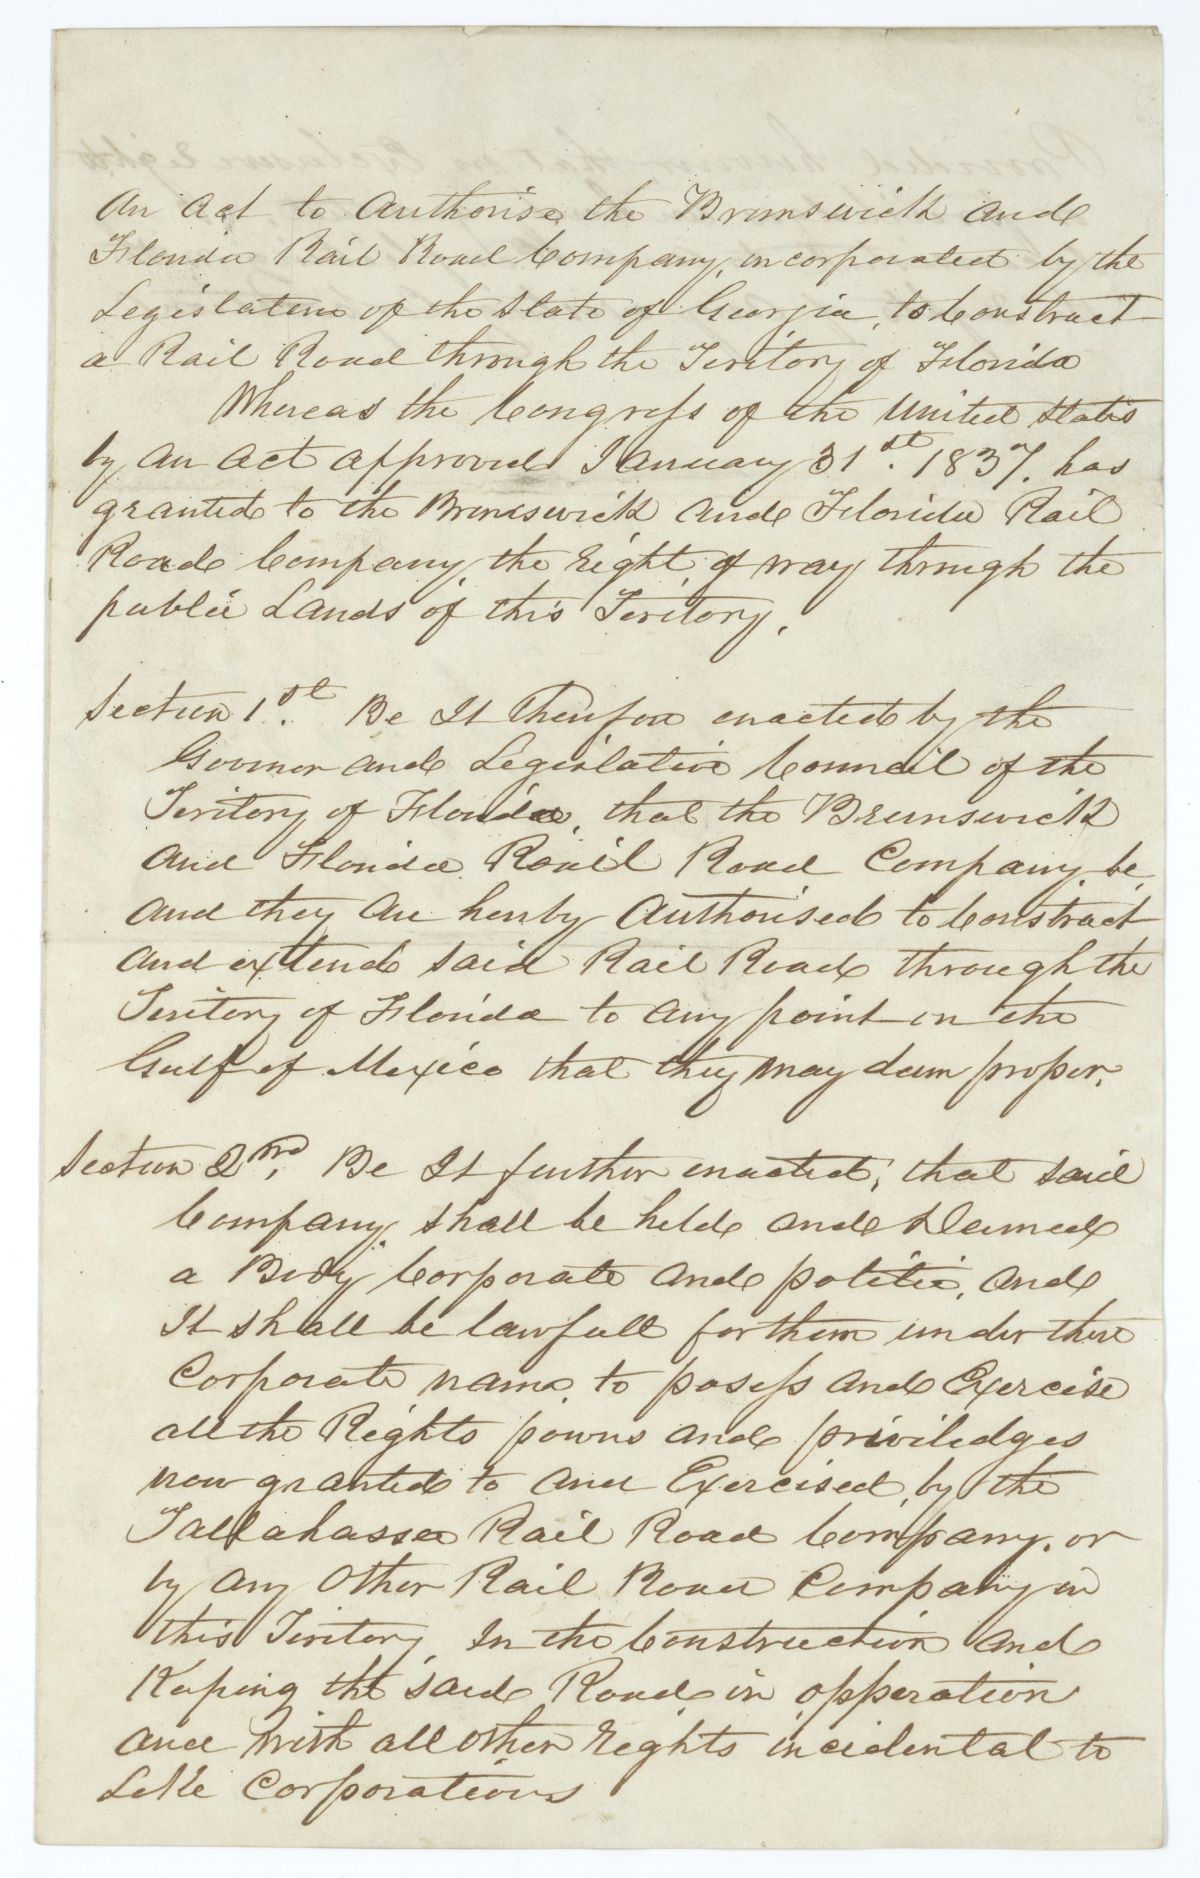 An Act to Authorise the Brunswick and
Florida Rail Road Company, incorporated by the
Legislature of the State of Georgia, to Construct
a Rail Road through the Teritory of Florida
Whereas the Congress of the United States
by an act approved January 31st. 1837. has
granted to the Brunswick and Florida Rail
Road Company, the Right of way through the
public Lands of this Teritory.
Section 1st. Be It Therefore enacted by the
Govornor and Legislative Council of the
Teritory of Florida, that the Brunswick
and Florida Rail Road Company, be,
and they are hereby Authorised to Construct
and extend said Rail Road through the
Teritory of Florida to any point on the
Gulf of Mexico that they may deem proper.
Section 2nd. Be It further enacted, that said
Company, shall be held and Deemed
a Body Corporate and politic, and
It shall be lawfull for them under there
Corporate name, to posess and Exercise
all the Rights powers and priviledges
now granted to and Exercised, by the
Tallahassee Rail Road Company. or
by any Other Rail Road Company in
this Teritory, In the Construction and
Keeping the said Road in opperation
and With all other Rights incidental to
Like Corporations